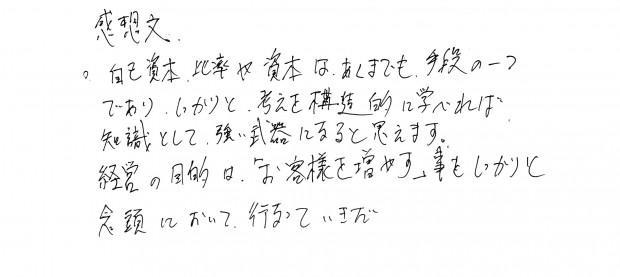 感想文.
。自己資本.比率や資本は.あくまでも.手段の一つ
であり.しっかりと.考えを構造的に学べれば
知識として.強い武器になると思えます。
経営の目的は.「お客様を増やす」事もしっかりと
念頭において.行なっていきたい